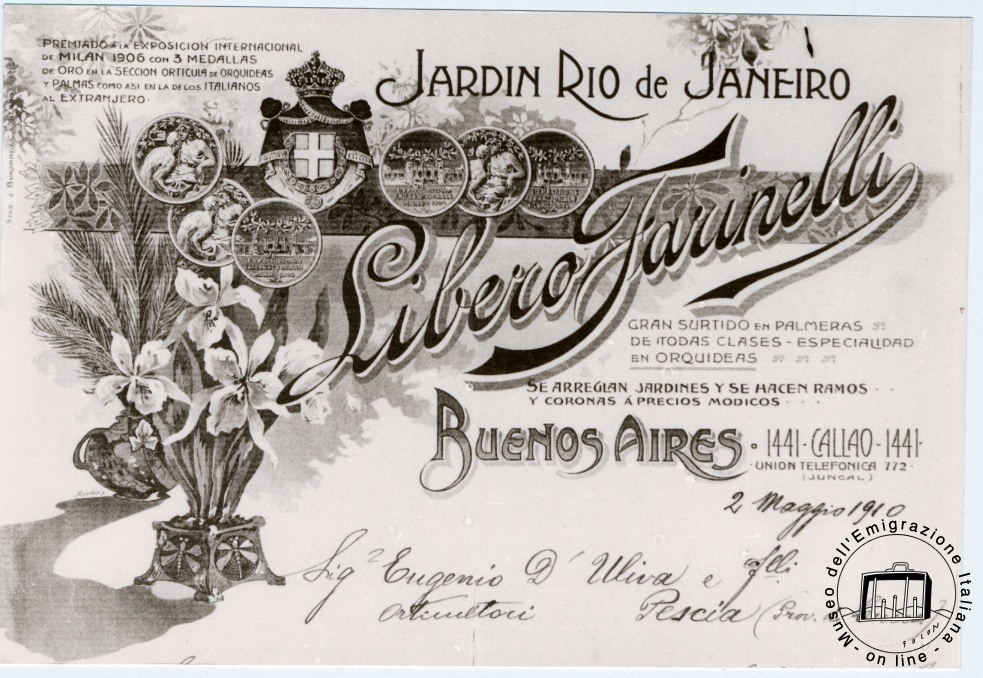 PREMIADO A LA EXPOSICION INTERNACIONAL
DE MILAN 1906 CON 3 MEDALLAS
DE ORO EN LA SECCION ORTICULA DE ORQUIDEAS
Y PALMAS COMO ASI EN LA DE LOS ITALIANOS
AL EXTRANJERO.
JARDIN RIO de JANEIRO
Libero Farinelli
GRAN SURTIDO EN PALMERAS
DE TODAS CLASES - ESPECIALIDAD
EN ORQUIDEAS
SE ARREGLAN JARDINES Y SE HACEN RAMOS
Y CORONAS Á PRECIOS MODICOS
BUENOS AIRES · 1441 - CALLAO - 1441 ·
UNION TELEFONICA 772 ·
(JUNCAL)
2 Maggio 1910
Sig.i Eugenio D'Uliva e flli
Orticultori Pescia (Prov. di
Museo dell'Emigrazione Italiana - on line -
FOLON